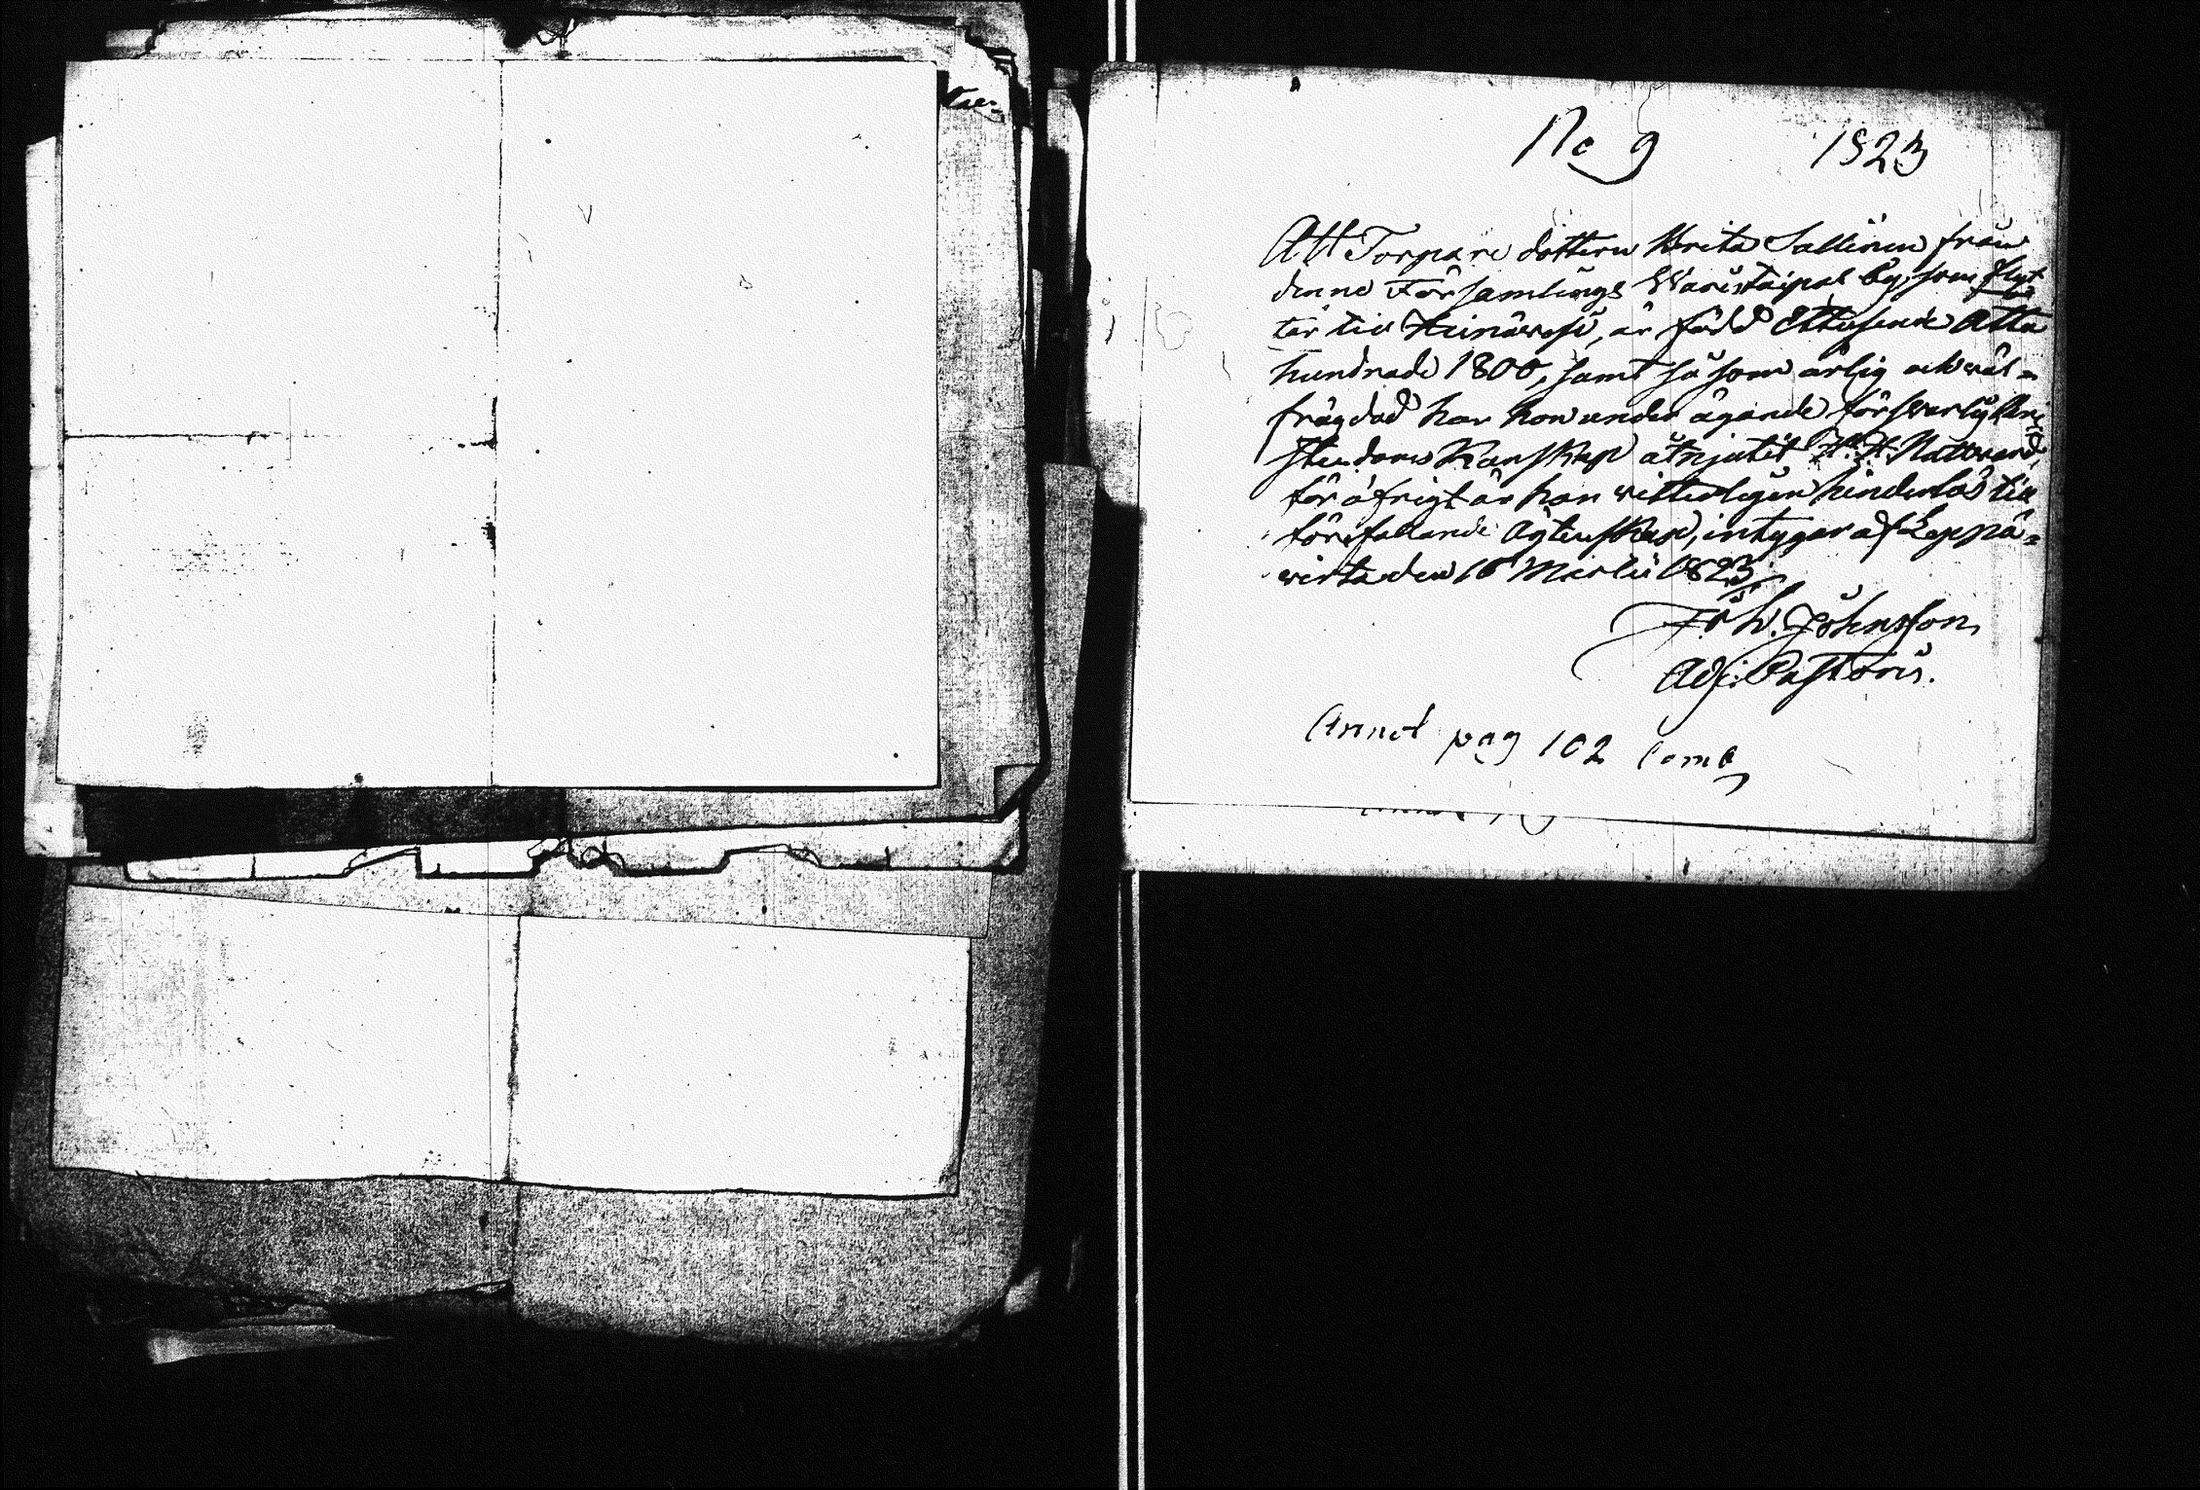 No 9 1823
Att Torpare dottern Brita Sallinen från
denne Församlings Waristaipal by, som flyt
ter till Heinäwesi, är född Ettusende Åtta
hundrade 1800, samt så som ärlig och wäl-
frägdad har hon under ägande förswarlig Kri
stendoms Kunskap åtnjutit H. H. Nattward,
för öfrigt är hon witterligen hinderlös till
förefallande Ägtenskap, intygar af Leppä-
wirta den 16 Martii 1823
Johnsson,
Adj: Pastoris.
Annot pag 102 Comb